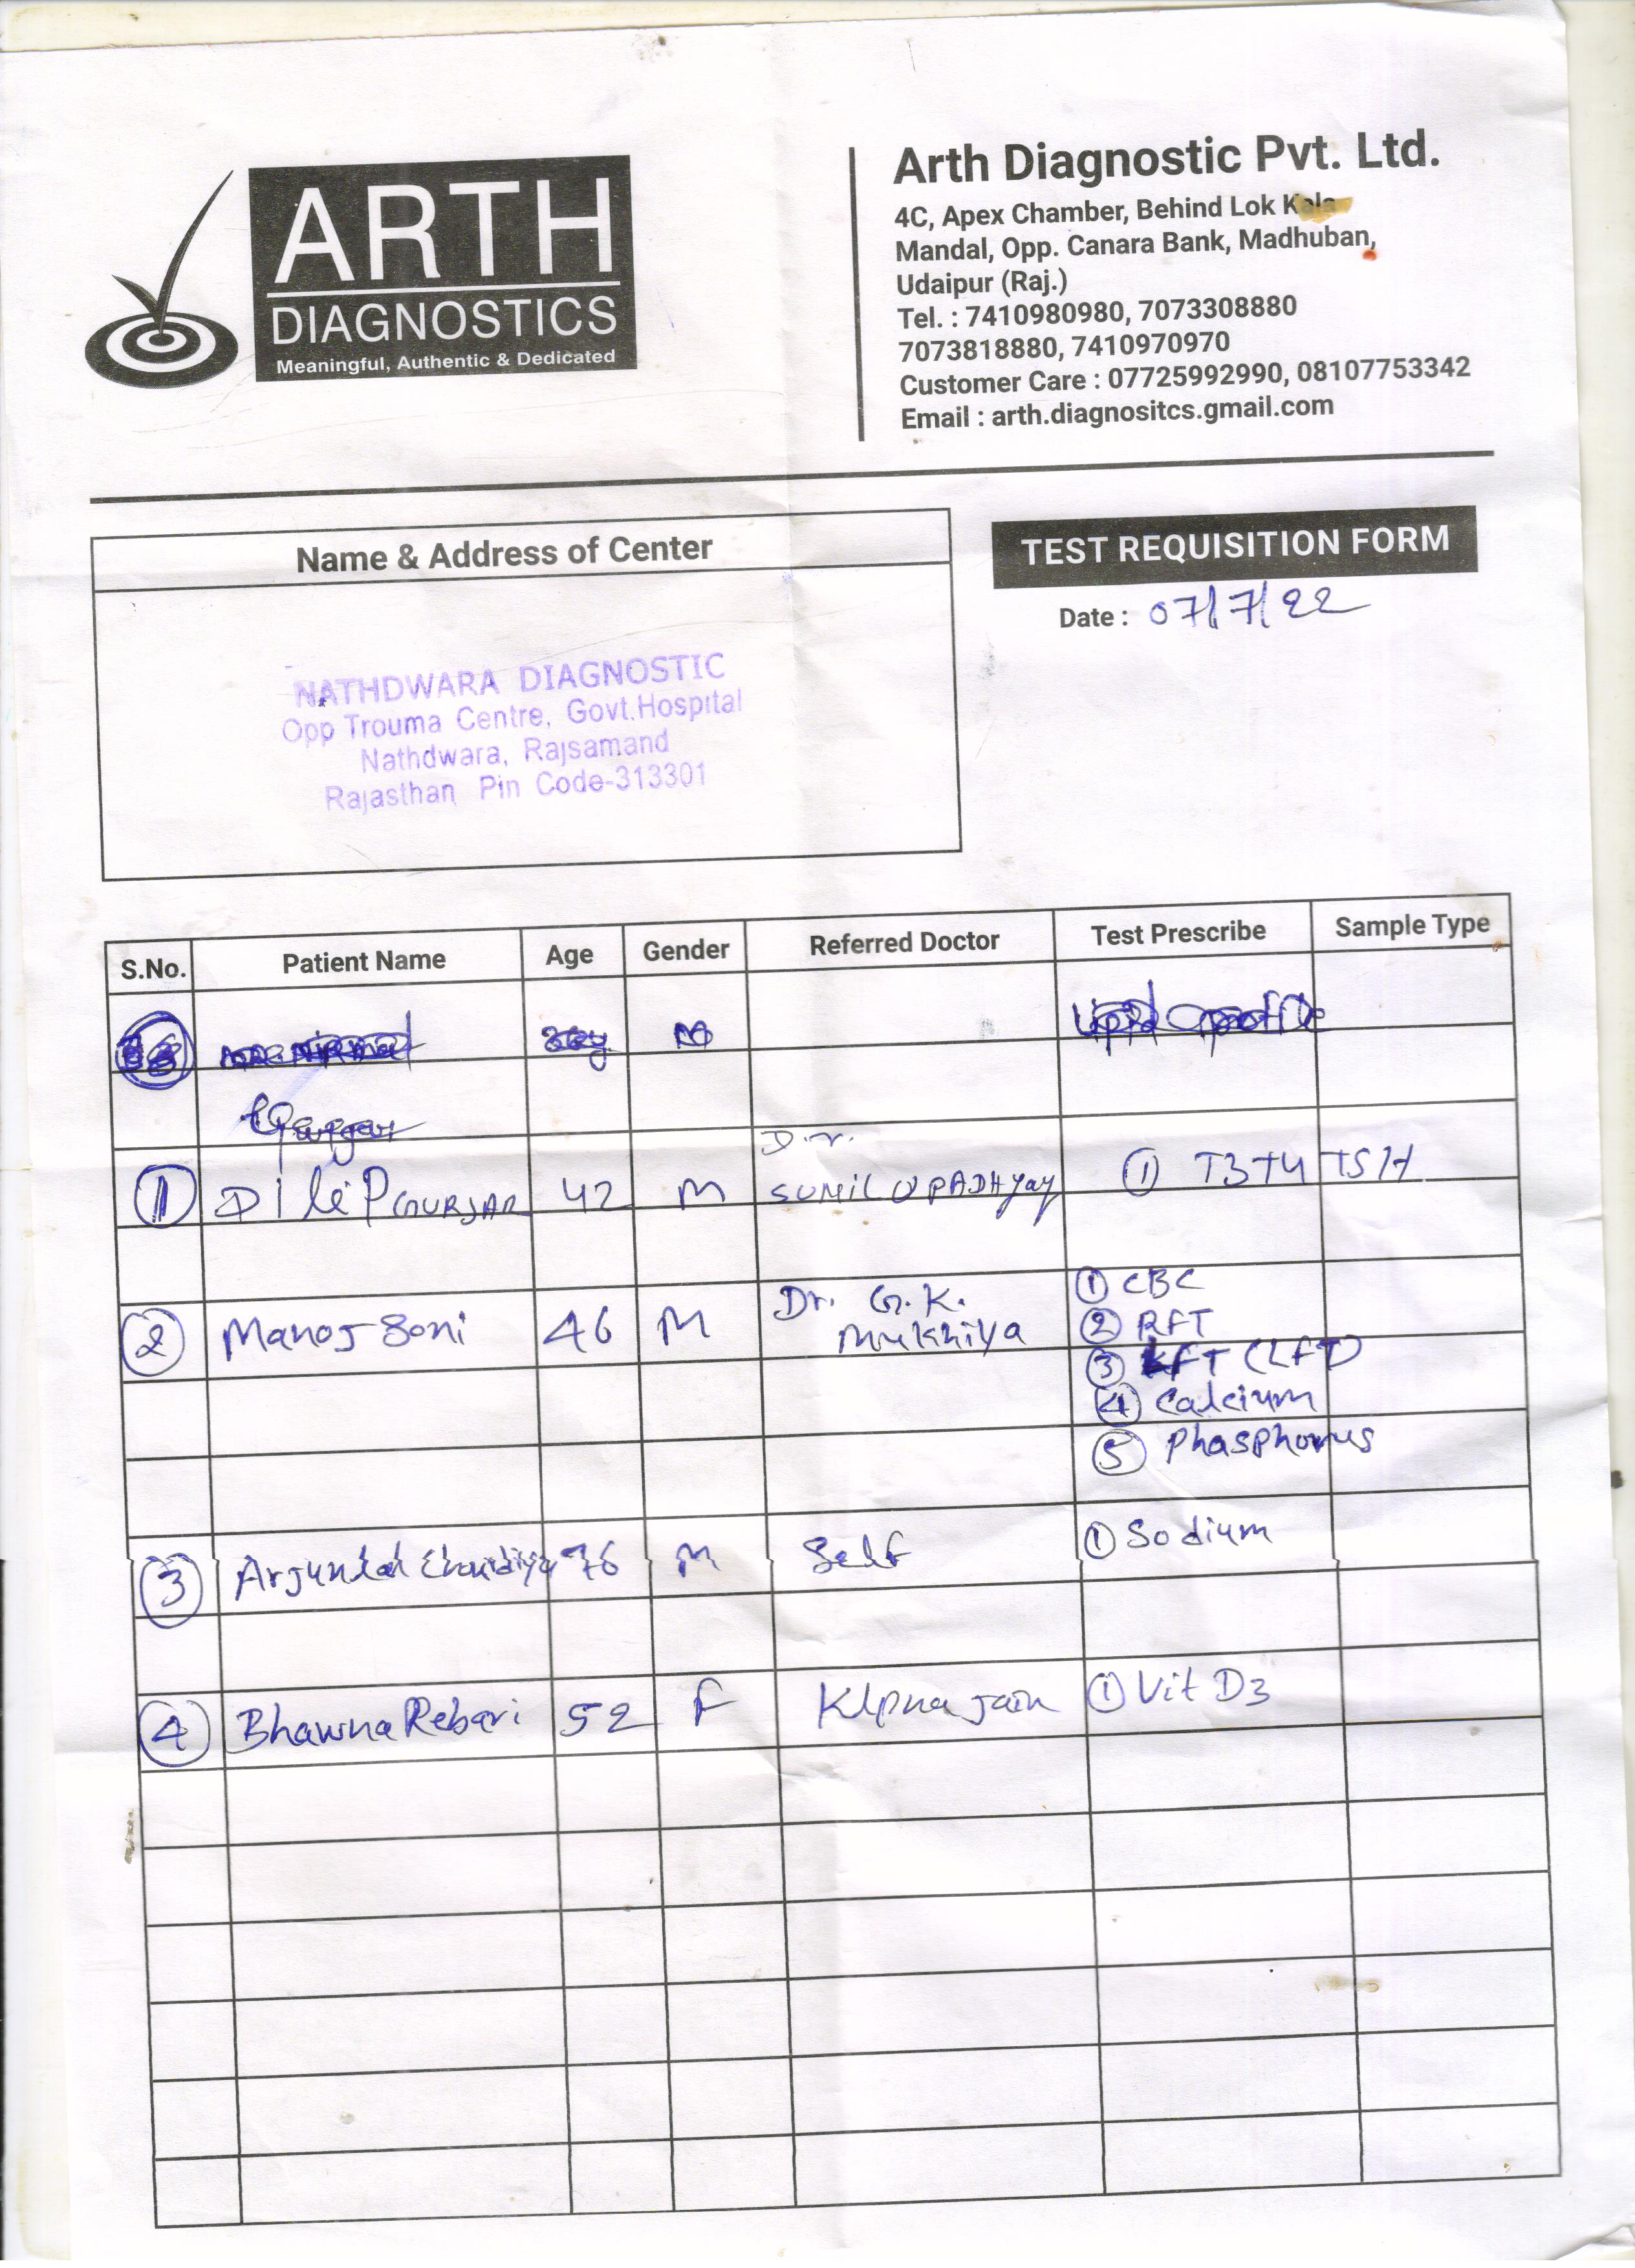 ARTH
DIAGNOSTICS
Meaningful, Authentic & Dedicated
Arth Diagnostic Pvt. Ltd.
4C, Apex Chamber, Behind Lok Kala
Mandal, Opp. Canara Bank, Madhuban,
Udaipur (Raj.)
Tel. : 7410980980, 7073308880
7073818880, 7410970970
Customer Care : 07725992990, 08107753342
Email : arth.diagnositcs.gmail.com
Name & Address of Center
NATHDWARA DIAGNOSTIC
Opp Trouma Centre, Govt.Hospital
Nathdwara, Rajsamand
Rajasthan Pin Code-313301
TEST REQUISITION FORM
Date : 07/7/22
S.No. Patient Name Age Gender Referred Doctor Test Prescribe Sample Type
Lipid profile
Dr.
1 DILIP GURJAR 42 M SUNIL UPADHYAY ① T3 T4 TSH
① CBC
2 Manoj Soni 46 M Dr. G.K. Mukhiya ② RFT
③ KFT (LFT)
④ Calcium
⑤ Phasphorus
3 Arjunlal 76 M Self ① Sodium
4 Bhawna Rebari 52 F Klpna Jain ① Vit D3